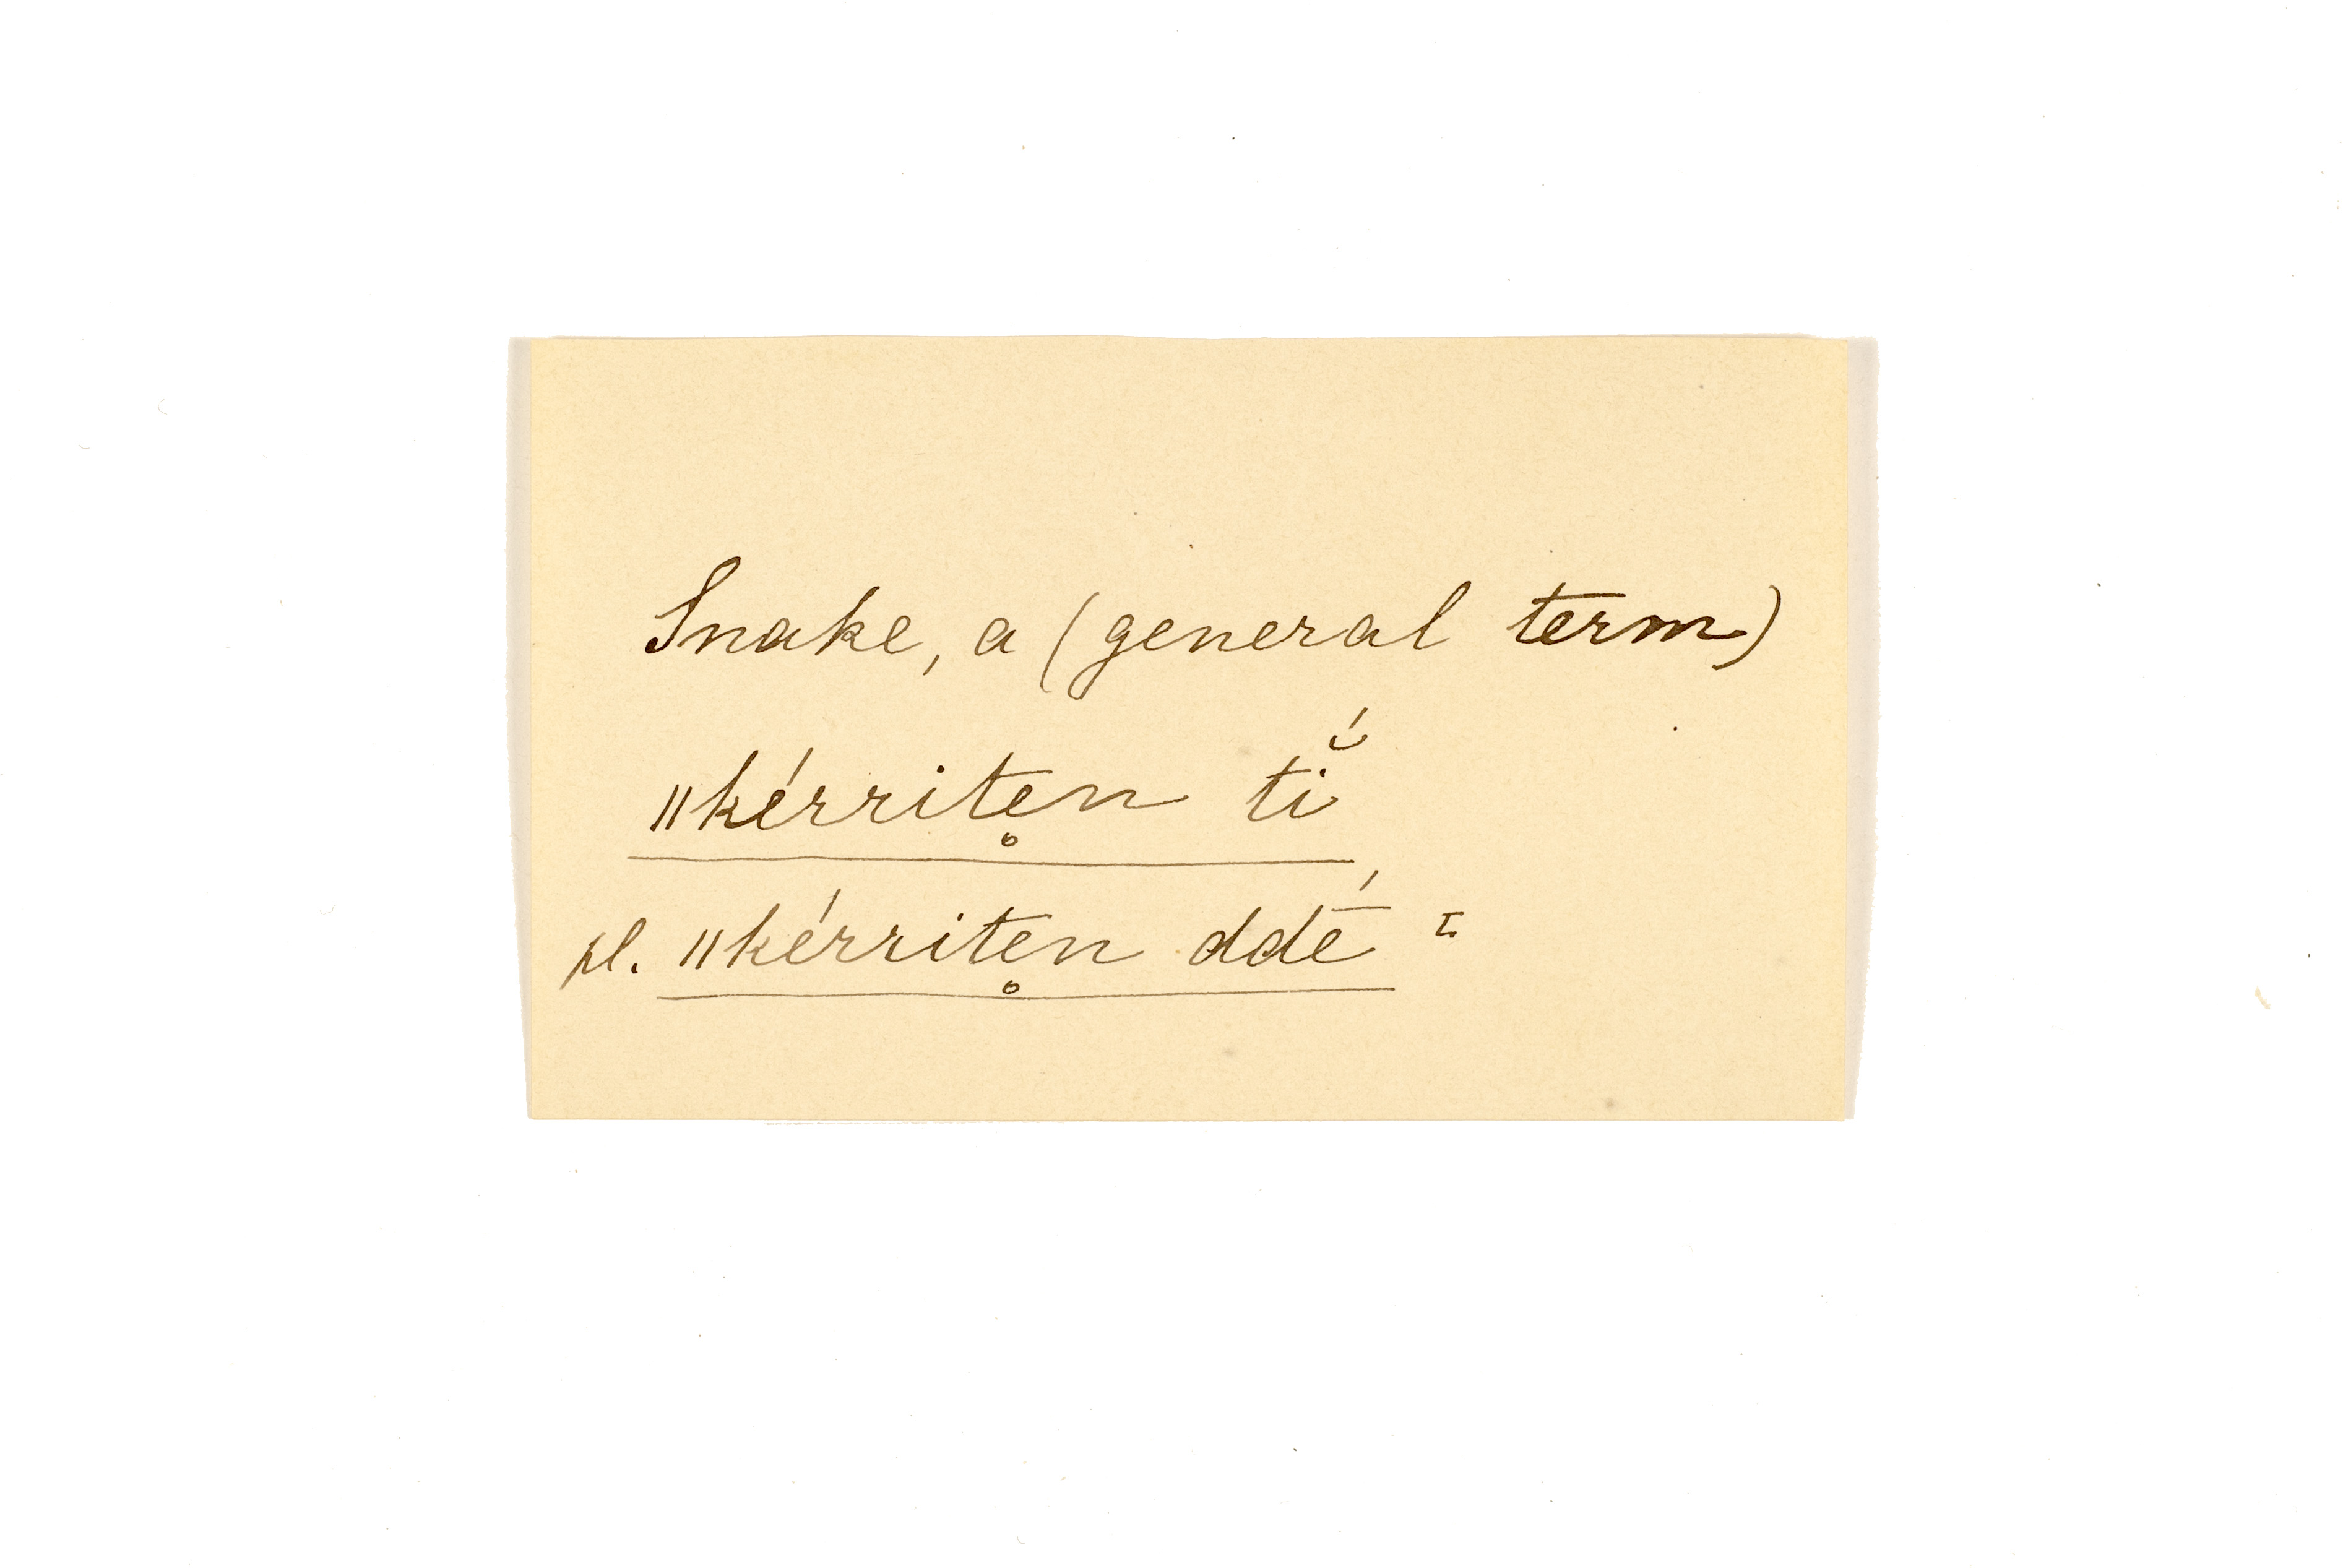 Snake, a (general term)
ǁkérriten̥ tĭ́
pl. ǁkérriten̥ ddḗ I.